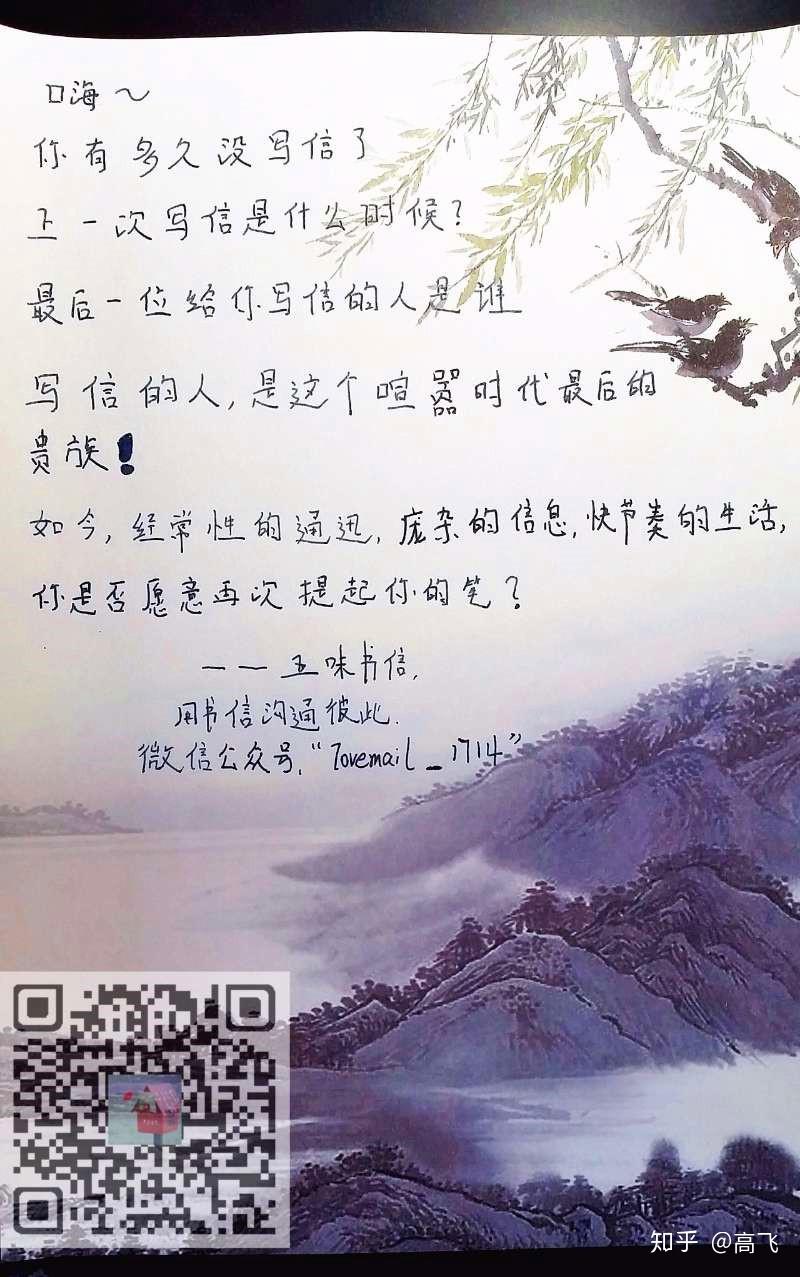 嗨～
你有多久没写信了
上一次写信是什么时候?
最后一位给你写信的人是谁
写信的人,是这个喧嚣时代最后的
贵族!
如今,经常性的通迅,庞杂的信息,快节奏的生活,
你是否愿意再次提起你的笔?
——五味书信.
用书信沟通彼此.
微信公众号,“7ovemail_1714”
知乎 @高飞